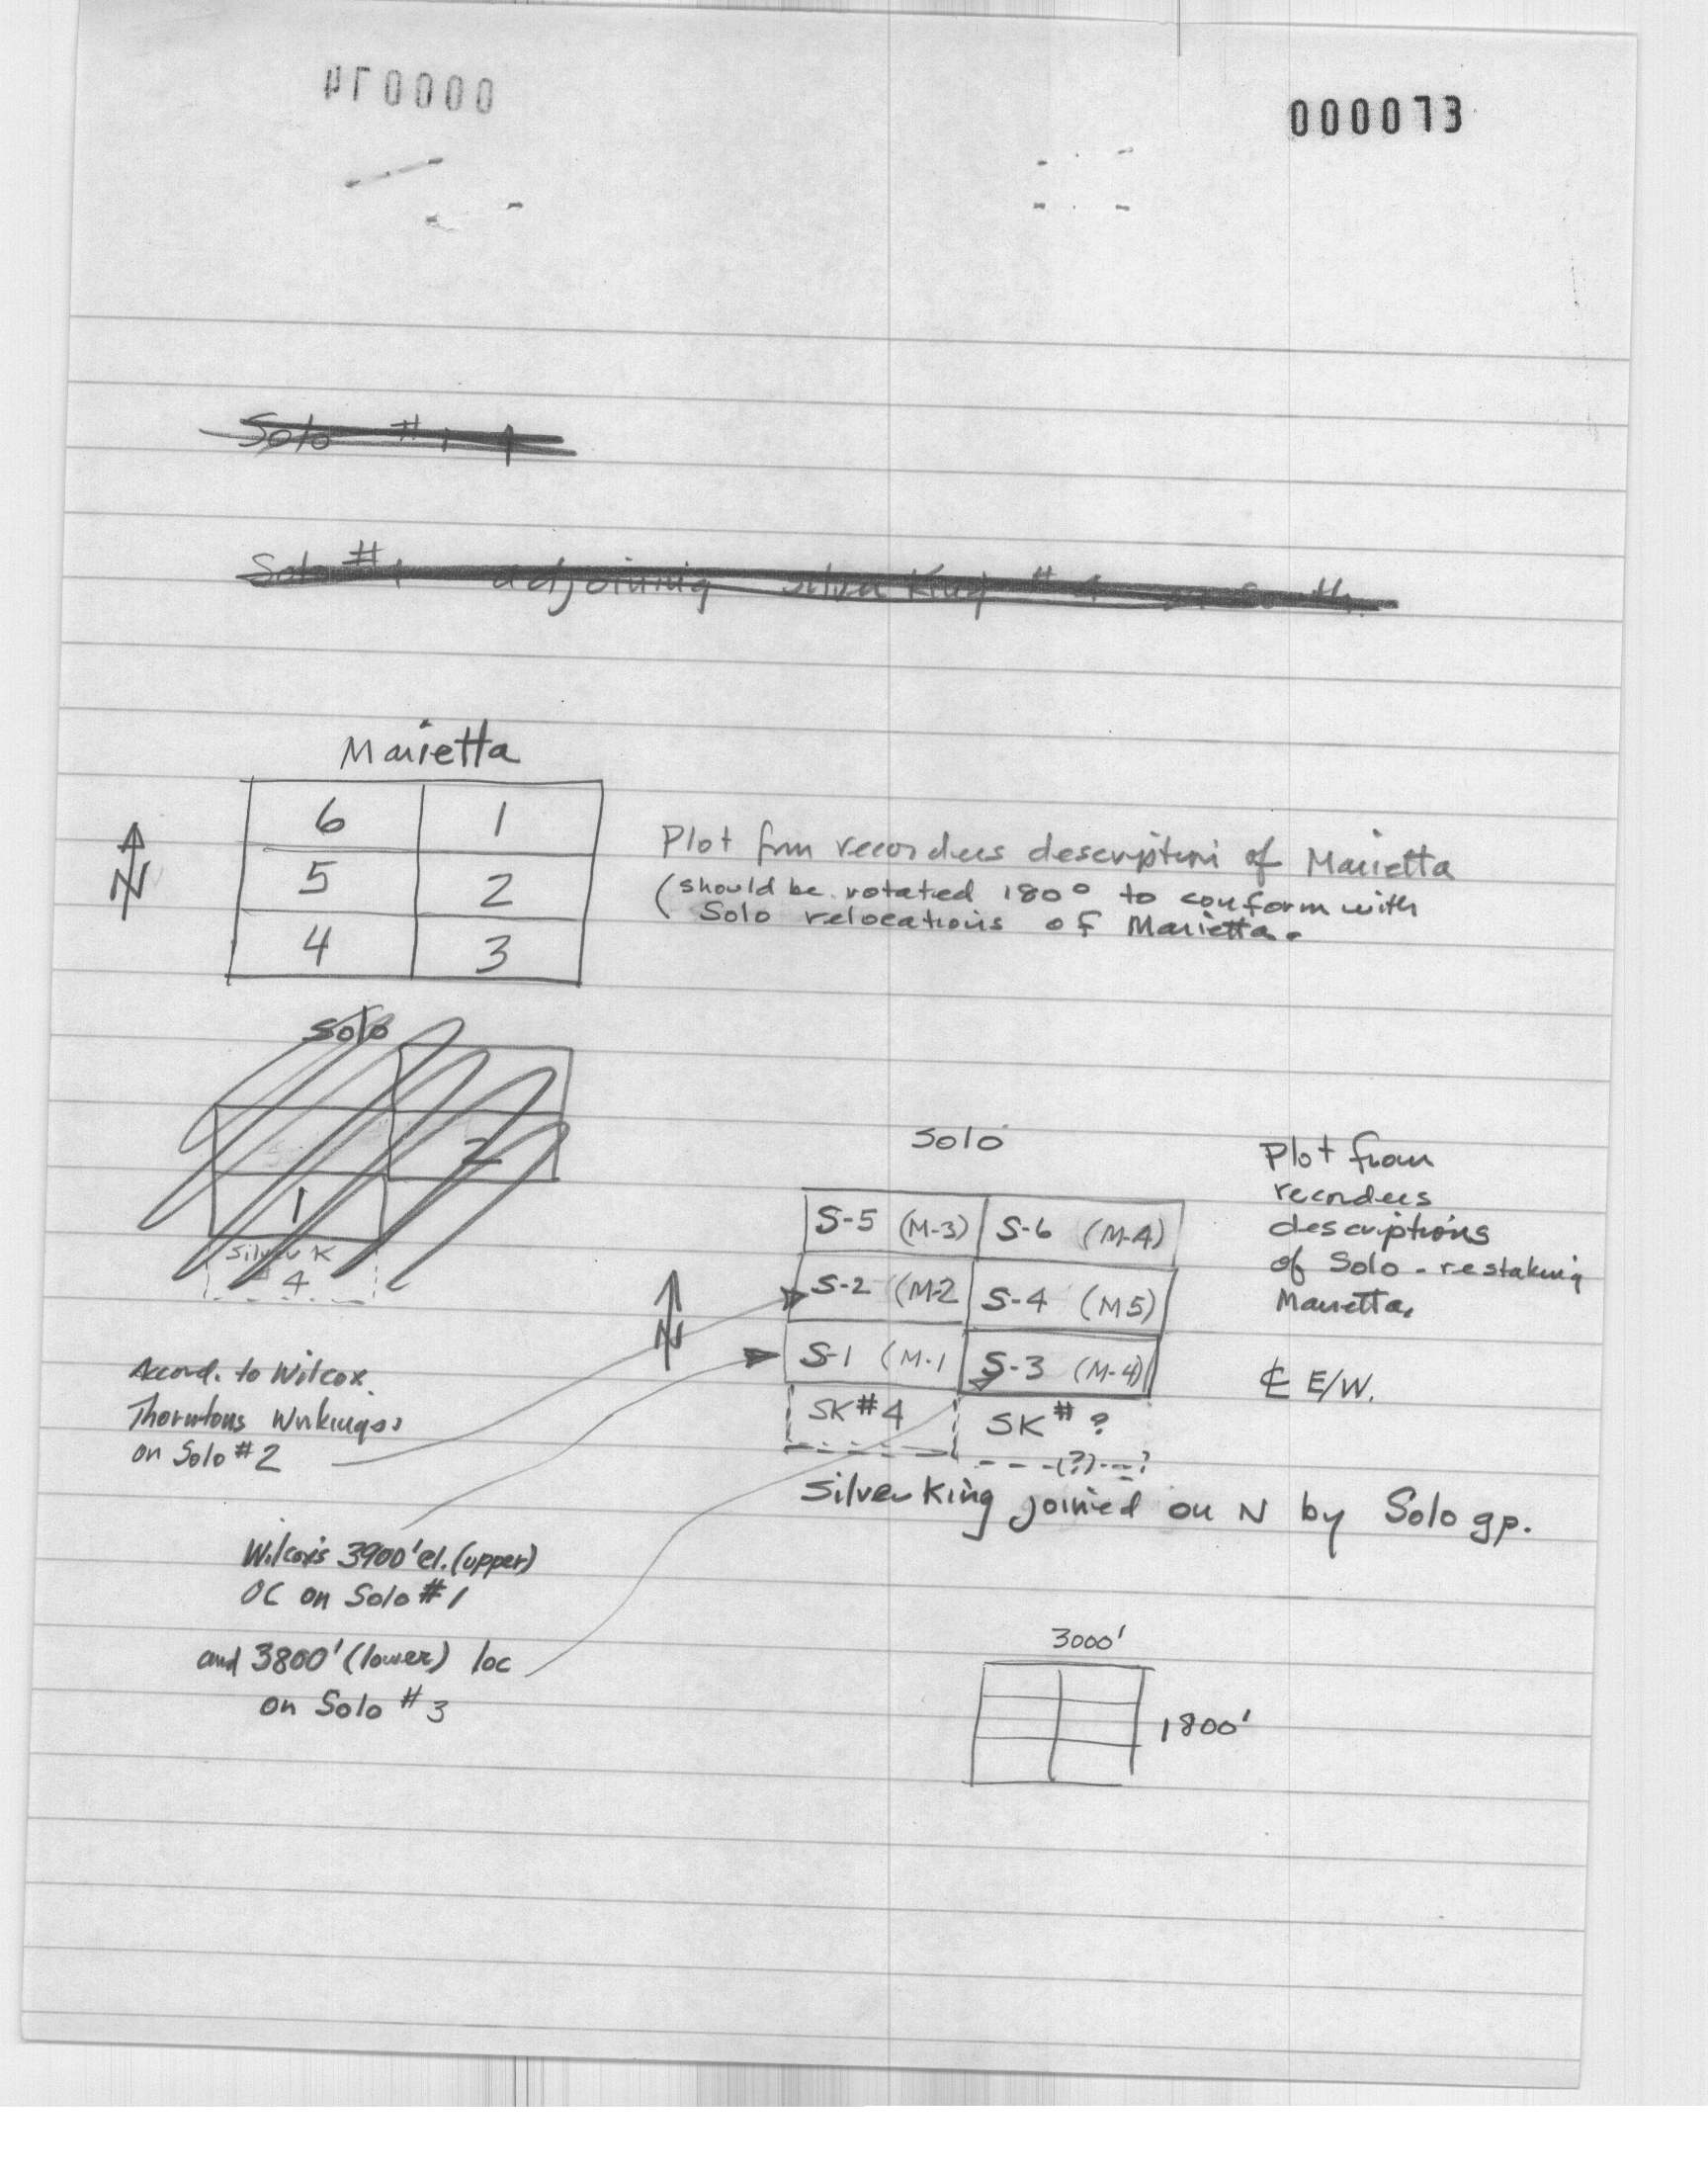 000073
Solo #1
Solo #1 adjoining Silver King #4 on South.
Marietta
6 1
5 2
4 3
N
Plot from recorders description of Marietta
(should be rotated 180° to conform with
Solo relocations of Marietta.
Solo
2
1
Silver K
4
Solo
S-5 (M-3) S-6 (M-4)
S-2 (M-2 S-4 (M5)
S-1 (M-1 S-3 (M-4)
SK#4 SK # ?
(?) ?
N
Plot from
recorders
descriptions
of Solo - restaking
Marietta.
℄ E/W.
Silver King joined on N by Solo gp.
Accord. to Wilcox
Thorntons Workings
on Solo #2
Wilcox's 3900' el. (upper)
OC on Solo #1
and 3800' (lower) loc
on Solo #3
3000'
1800'